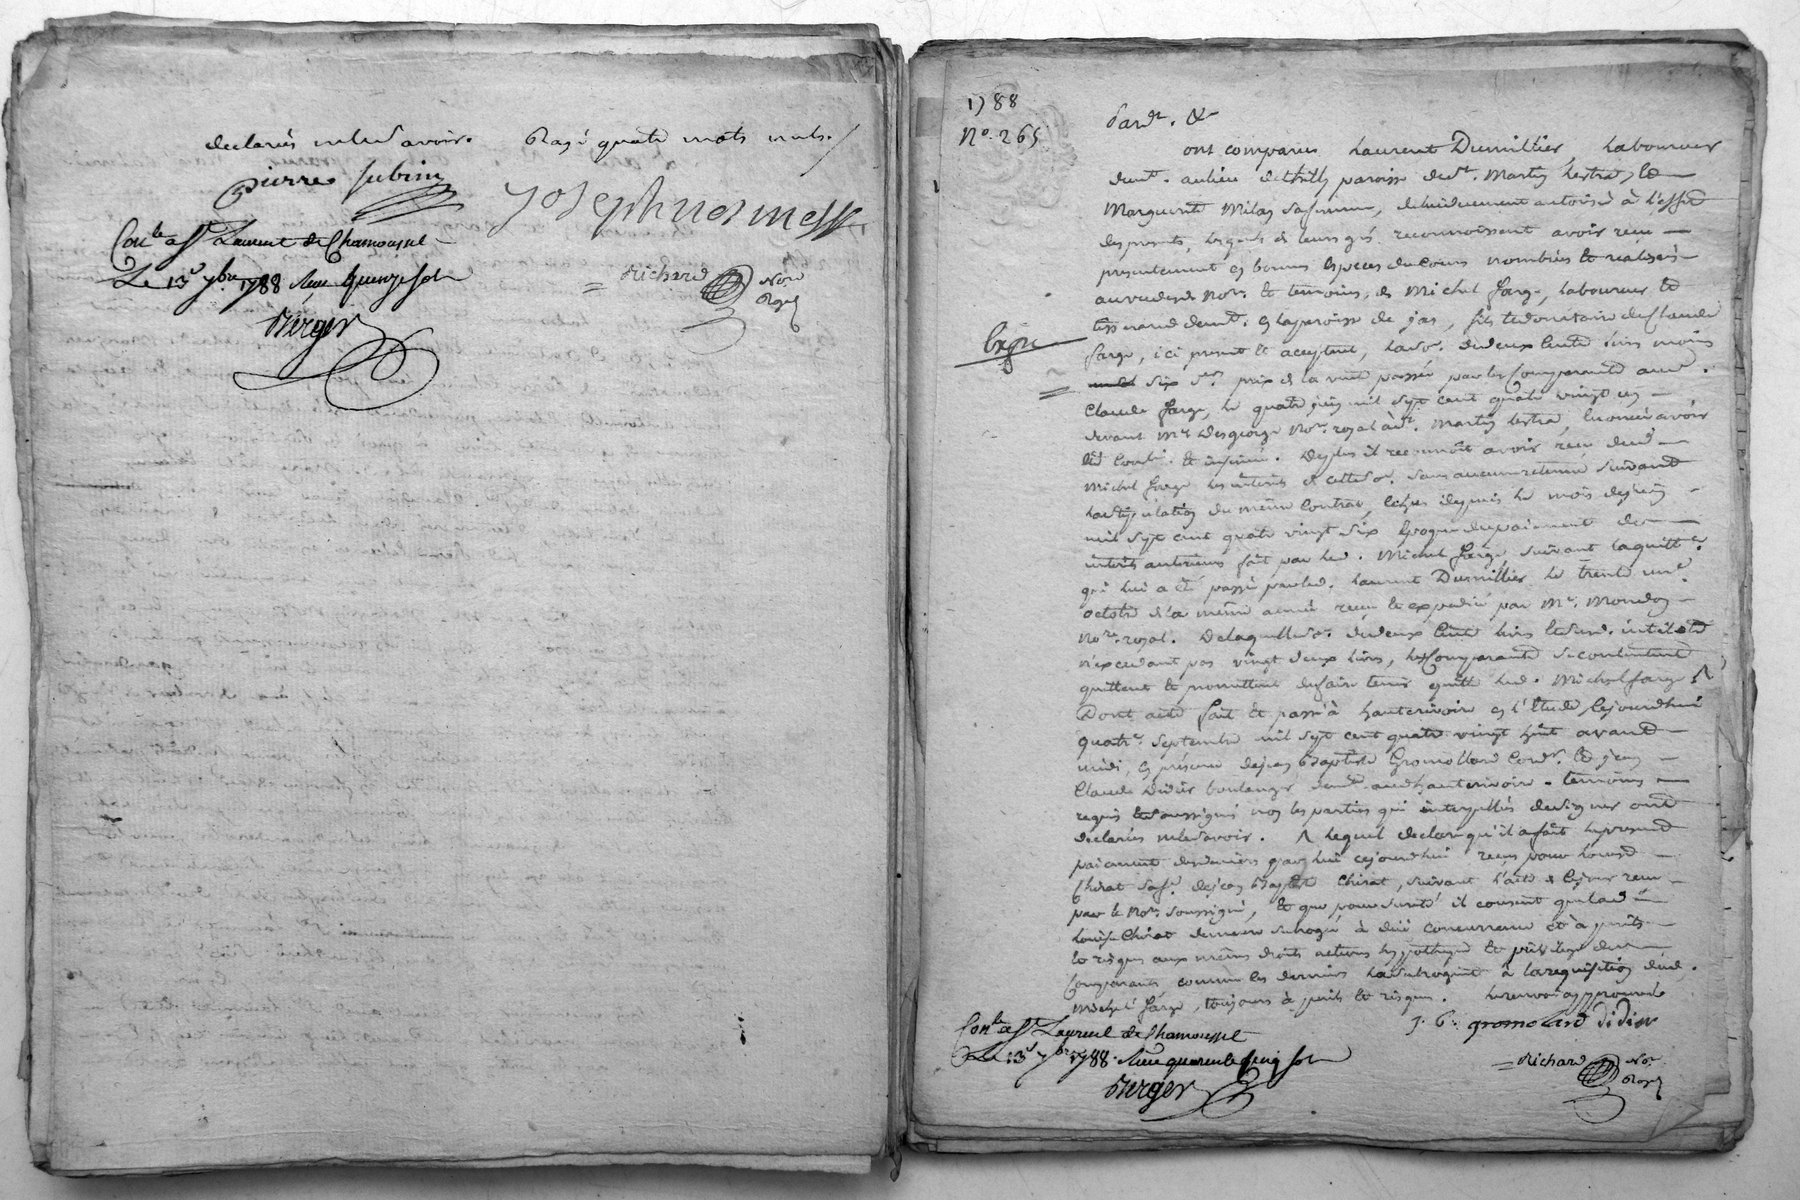 declarés ne le savoir. Rayé quatre mots nuls.
pierre subrin
Joseph
Con.le a St Laurent de Chamousset
Le 13 7bre 1788 Reçu quinze sols
Berger
Richard Nore Royl
1788
No. 265
Pardt. &
ont comparus Laurent Dumillier, laboureur
demt. au lieu de paroisse de St. Martin Lestra, &
Marguerite Milas sa femme, de lui duement autorisée à l'effet
des presents, lesquels de leurs gré reconnoissent avoir reçu
presentement en bonnes especes du cours nombrées et réalisées
au vu desd. Nore. et temoins, de Michel farge, laboureur et
tisserand demt. en la paroisse de jas, fils et donataire de Claude
farge, ici present et acceptant, la so. de deux cents livres moins
Expée
six srs. prix de la vente passée par les Comparants aud.
Claude farge, le quatre juin mil sept cent quatre vingt un
devant Me Desgeorge Nore. royal à St. Martin Lestra, lu avoir
été Conlé. et insinué. Deplus il reconnoît avoir reçu dud.
Michel farge les interets de cette so. sans aucune retenue suivant
la stipulation du même Contrat, échus depuis le mois de juin
mil sept cent quatre vingt six Epoque du paiement des
interets anterieurs fait par led. Michel farge suivant la quittce.
qui lui a été passée par led. Laurent Dumillier le trente un
octobre de la même année reçue et expediée par Me. Mondon
Nore. royal. De laquelle so. de deux cents livres et desd. interets
n'excedant pas vingt deux livres, les Comparants se contentent
quittent et promettent de faire tenir quitte led. Michel farge
Dont acte fait et passé à hauterivoire en l'Etude, cejourdhui
quatre Septembre mil sept cent quatre vingt huit avant
midi, en présence de jean Baptiste Gromollard Cordr. et jean
Claude Didier boulanger demt. aud. hauterivoire temoins
requis et soussignés non les parties qui interpellées de signer ont
declarées ne le savoir. Lequel declare qu'il a fait le present
paiement des deniers par lui cejourdhui reçus pour Louise
Chirat sa fe. de jean Baptiste Chirat, suivant l'acte de cejour reçu
par le Nore. soussigné, et que pour sureté il consent que lad.
Louise Chirat demeure subrogée à due concurrence et à perils
et risques aux mêmes droits actions hypotheque et privilege des
Comparants comme ces derniers la subrogent à la requisition dud.
Michel farge, toujours à perils et risques. Le renvoi approuvé
J. B. gromolard didier
Con.le a St Laurent de Chamousset
Le 13 7bre 1788 Reçu quarente cinq sols
Berger
Richard Nore Royl